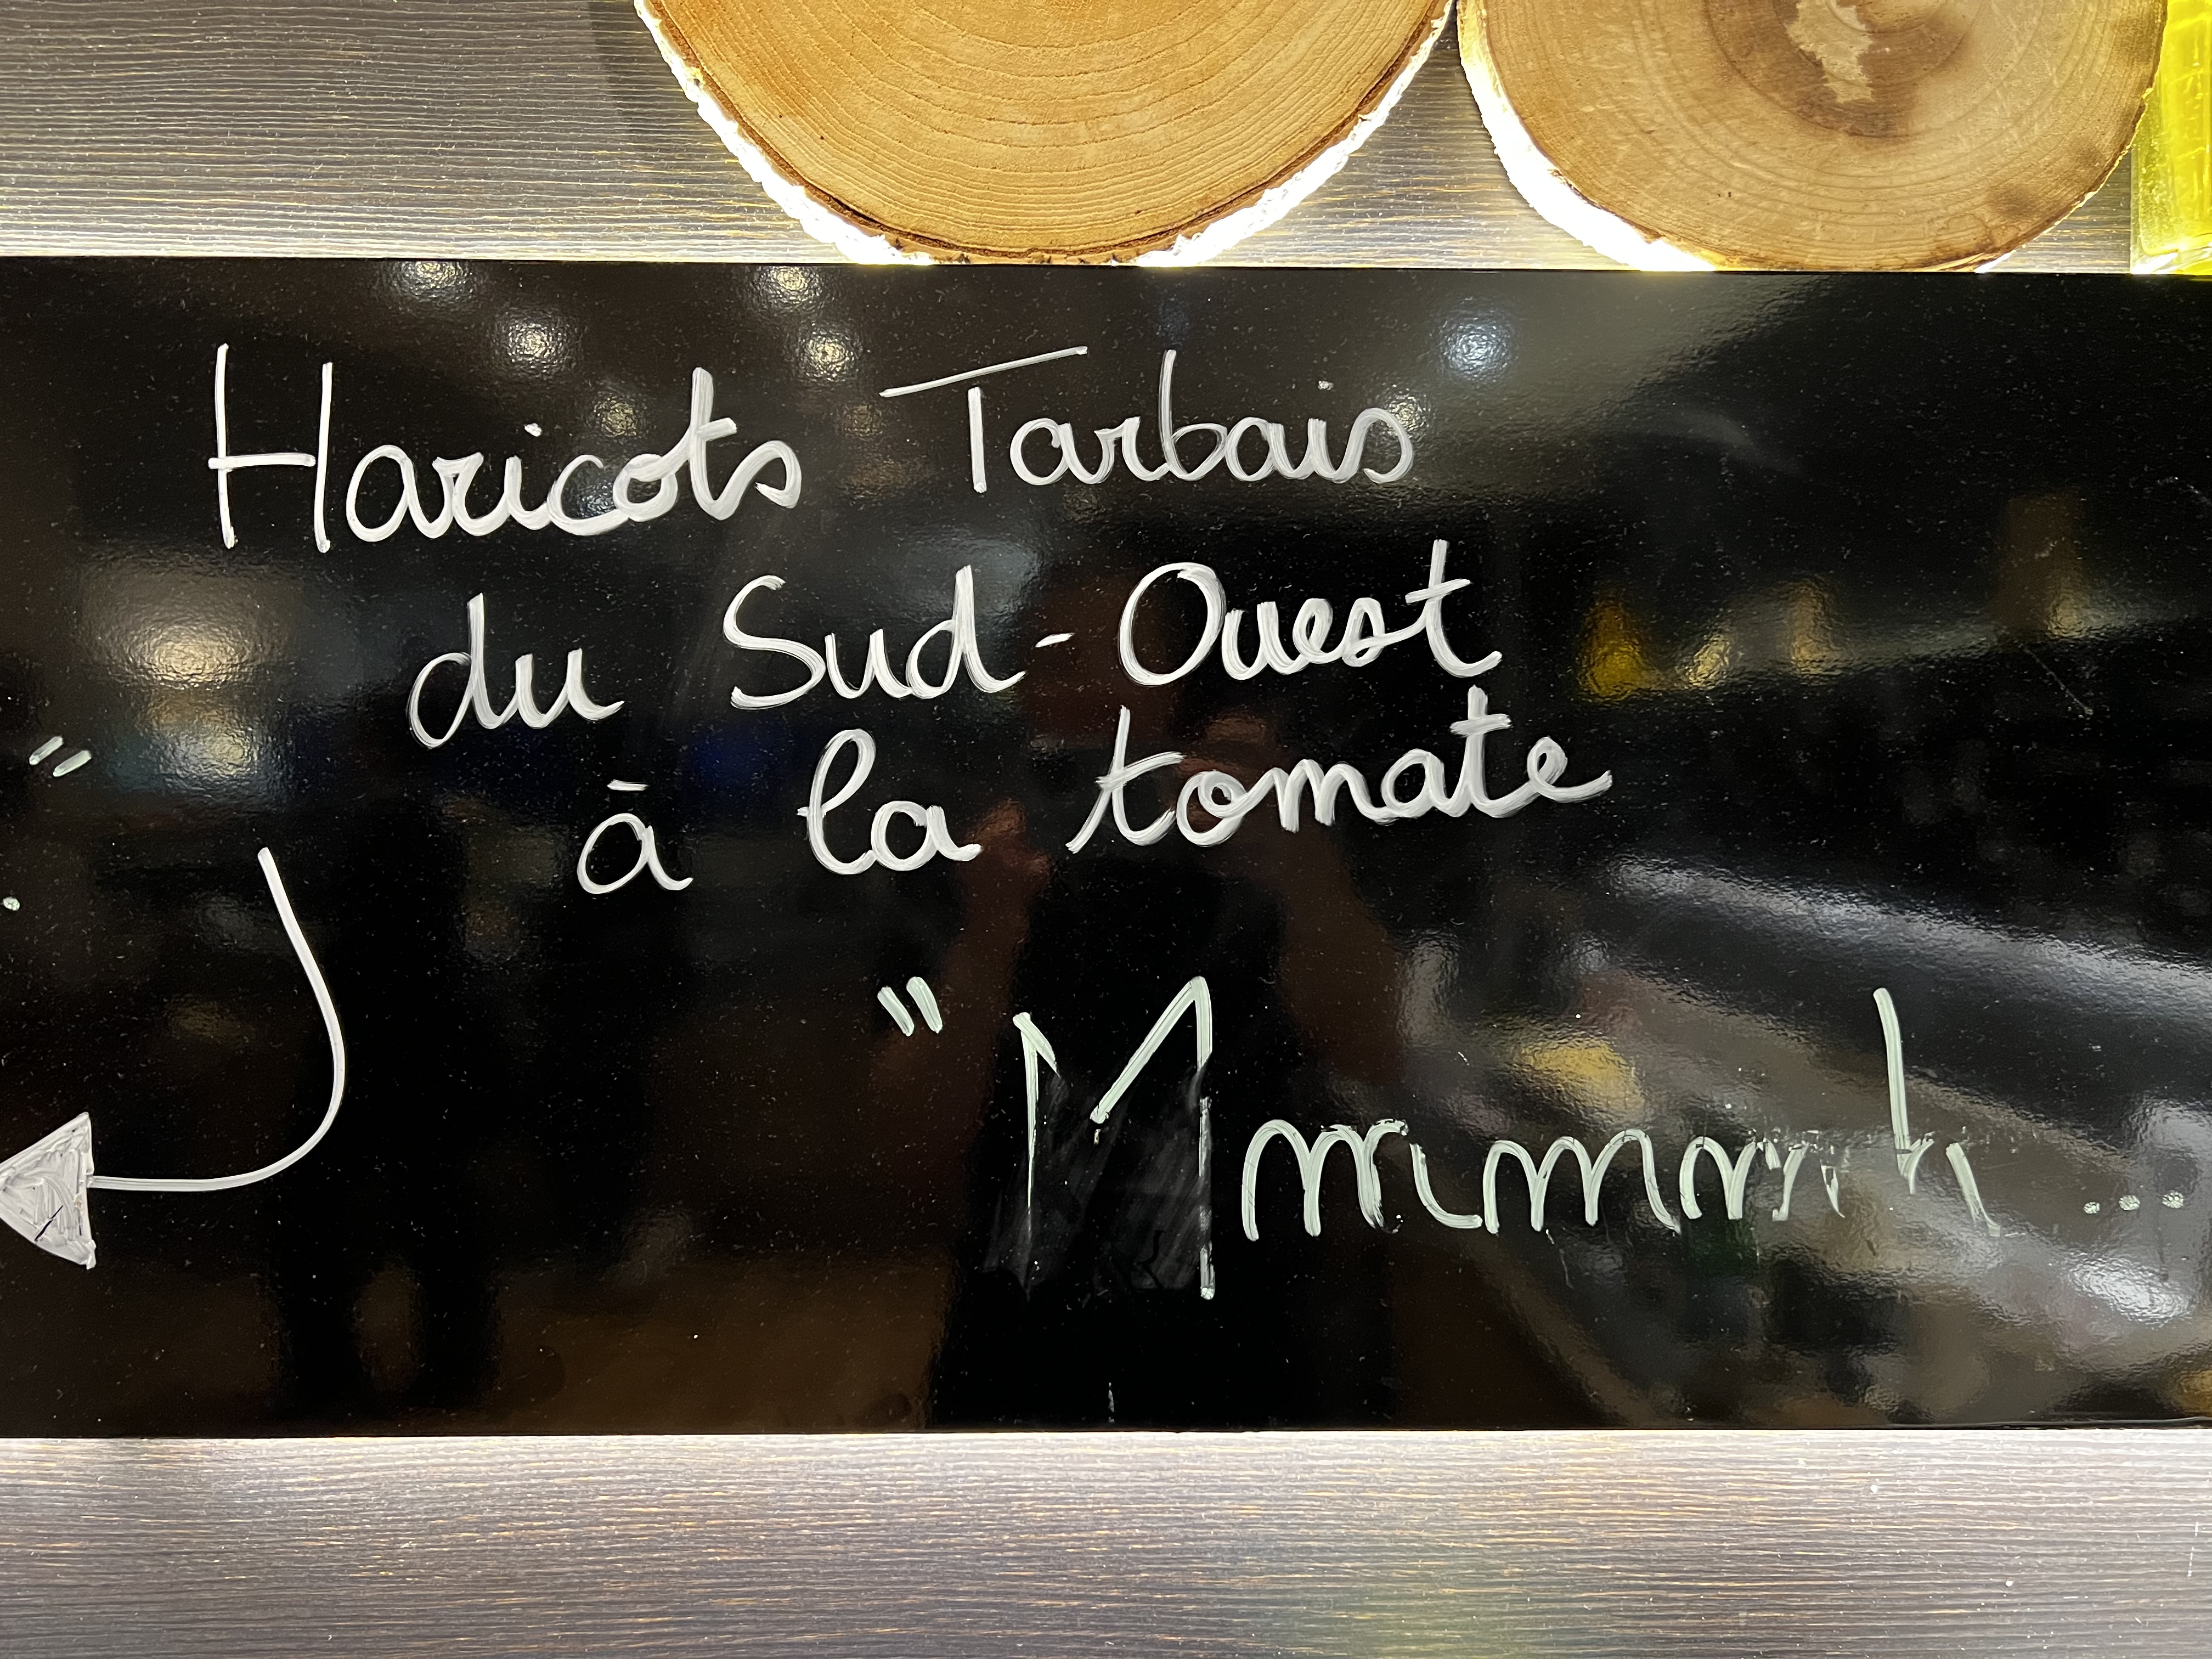 Haricots Tarbais
du Sud-Ouest
à la tomate
"Mmmmmmh...